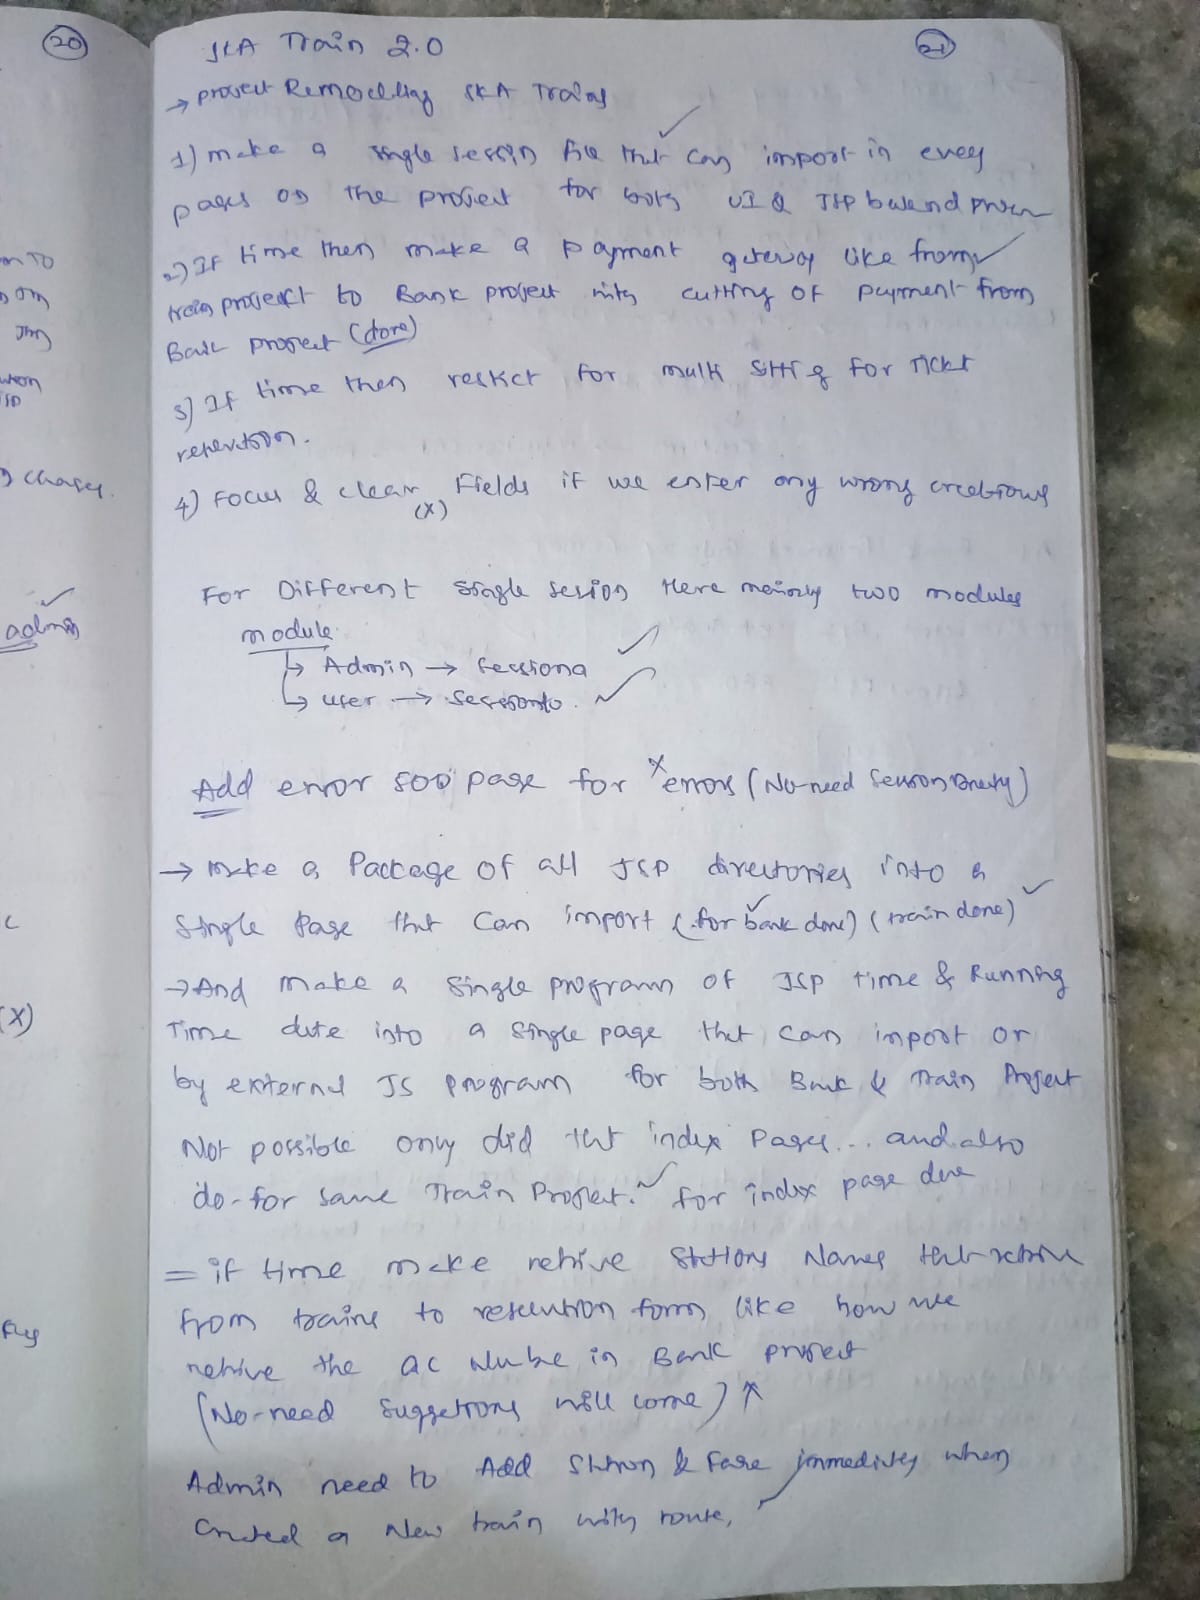 20
21
SKA Train 2.0
→ project Remodelling SKA Trains
1) make a single session file that can import in every
pages on the project for both UI & JSP backend
2) If time then make a payment gateway like from
train project to Bank project with cutting of payment from
Bank project (done)
3) If time then restict for multi sitting for Ticket
reservation.
4) Focus & clear (x) Fields if we enter any wrong
For Different single session Here mainly two modules
module
↳ Admin → sessiona
↳ user → sessionto.
Add error 500 page for errors (No-need
→ make a Package of all JSP directories into a
single page that can import (for bank done) (train done)
→ And make a single program of JSP time & Running
time date into a single page that can import or
by external JS program for both Bank & Train Project
Not possible only did that index pages... and also
do-for same Train Project. for index page done
= if time make retrive stations Names that
from trains to resevtion form like how we
retrive the ac Number in Bank project
(No-need suggetions will come) x
Admin need to Add station & Fare immeditely when
Created a New train with route,
admin
(x)